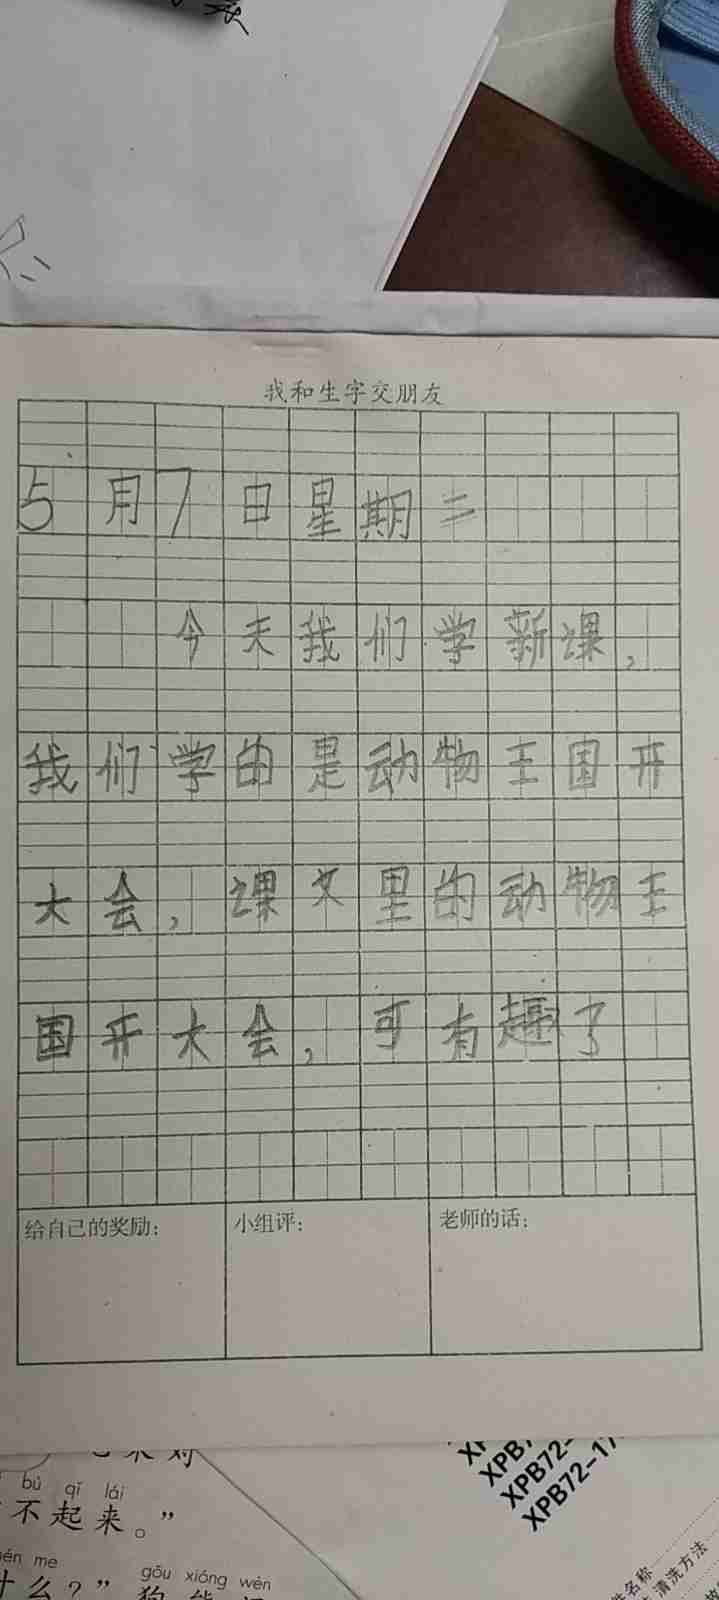 我和生字交朋友
5月7日星期二
今天我们学新课,
我们学的是动物王国开
大会,课文里的动物王
国开大会,可有趣了
给自己的奖励:
小组评:
老师的话:
bù qǐ lái
不起来。”
me
什么?” gǒu xióng wèn
XPB72-
XPB72-17
件名称
清洗方法